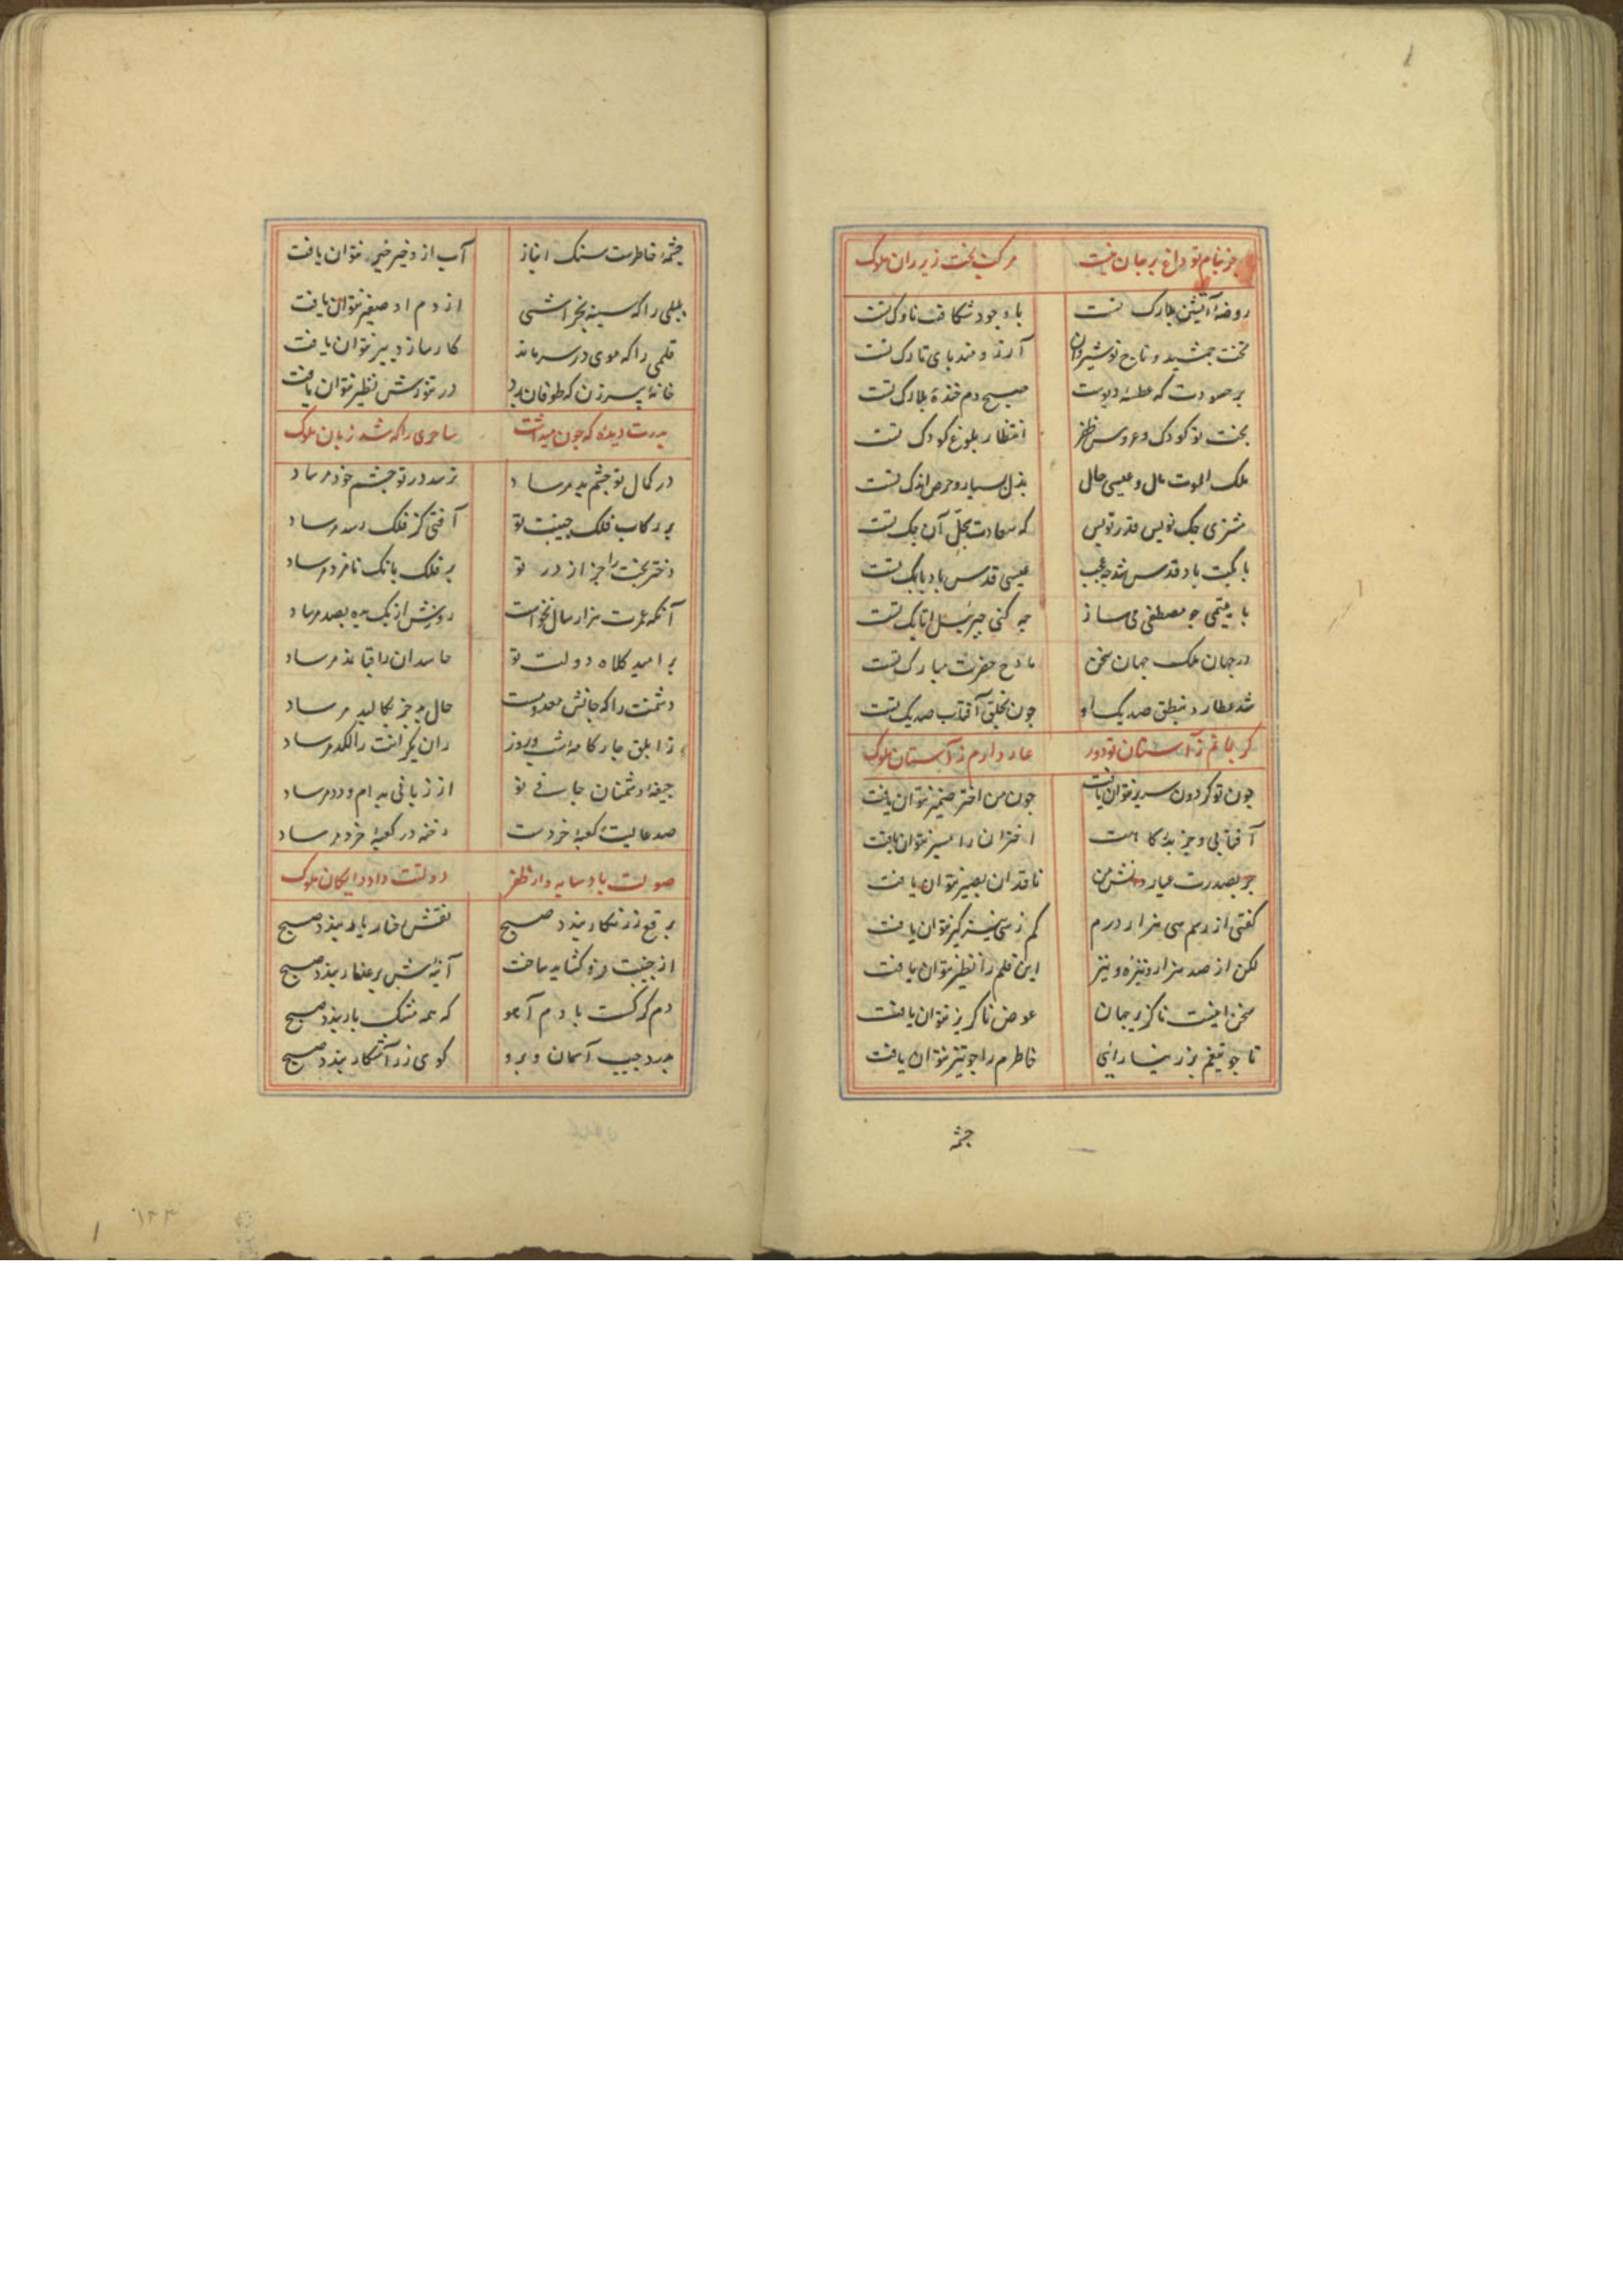 جز بنام تو داغ بر جان نیست مرکب بخت زیر ران ملوک
روضهٔ آتشین بلارک تست باد جودی شکاف ناوک تست
تخت جمشید و تاج نوشیروان آرزومند پای تارک تست
بر حسودت که عطسهٔ دیوست صبح دم خندهٔ بلارک تست
بخت تو کودک و عروس ظفر انتظار بلوغ کودک تست
ملک الموت مال و عیسی حال بذل بسیار و حرص اندک تست
مشتری چک نویس قدر تو بس که سعادت سجل آن چک تست
با یتیمی چو مصطفی می ساز چه کنی جبرئیل اتابک تست
در جهان ملک جهان سخن مادح حضرت مبارک تست
شد عطارد بنطق صد یک او چون بخلق آفتاب صد یک تست
کر بمانم ز آستان تو دور عار دارم ز آستان ملوک
چون تو کردون سریر نتوان یافت چون من اختر ضمیر نتوان یافت
آفتابی و جز بدرکاهت اختران را مسیر نتوان یافت
جز بصدرت عیار دانش من ناقدان بصیر نتوان یافت
کفتی از رسم سی هزار درم کم ز سی شیر کیر نتوان یافت
لکن از صد هزار نیزه و تیر این قلم را نظیر نتوان یافت
سخن اینست ناکزیر جهان عوض ناکزیر نتوان یافت
تا چو تیغم بزر نیارائی خاطرم را چو تیر نتوان یافت
چشمه
چشمهٔ خاطرست سنک انباز آب از و خیر خیر نتوان یافت
بلبلی را که سینه بخراشی از دم او صفیر نتوان یافت
قلمی را که موی در سر ماند کار ساز دبیر نتوان یافت
خانهٔ پیرزن که طوفان برد در تنورش فطیر نتوان یافت
پدرت دیده که چون میداشت ساحری را که شد زبان ملوک
در کمال تو چشم بد مرساد نرسد در تو چشم خود مرساد
بر رکاب فلک جنیبت تو آفتی کز فلک رسد مرساد
دختر بخت را جز از در تو بر فلک بانک نامزد مرساد
آنکه عمرت هزار سال نخواست روزش از یک بده بصد مرساد
بر امید کلاه دولت تو حاسدان را قبا نمد مرساد
دشمنت را که جانش معدومست حال بد جز بکالبد مرساد
زابلق چارکامهٔ شب و روز ران یکرانت را لکد مرساد
جیفهٔ دشمنان جافی تو از زبانی بدام و دد مرساد
صدر عالیت کعبهٔ خردست رخنه در کعبهٔ خرد مرساد
صولت باد سایه دار ظفر دولتت داد رایکان ملوک
برقع زرنکار بندد صبح نقش رخسار یار بندد صبح
از جنیبت فرو کشاید ساخت آینه اش بر عذار بندد صبح
دم کرکست یا دم آهو که همه مشک بار بندد صبح
بدرد جیب آسمان و برو کوی زر آشکار بندد صبح